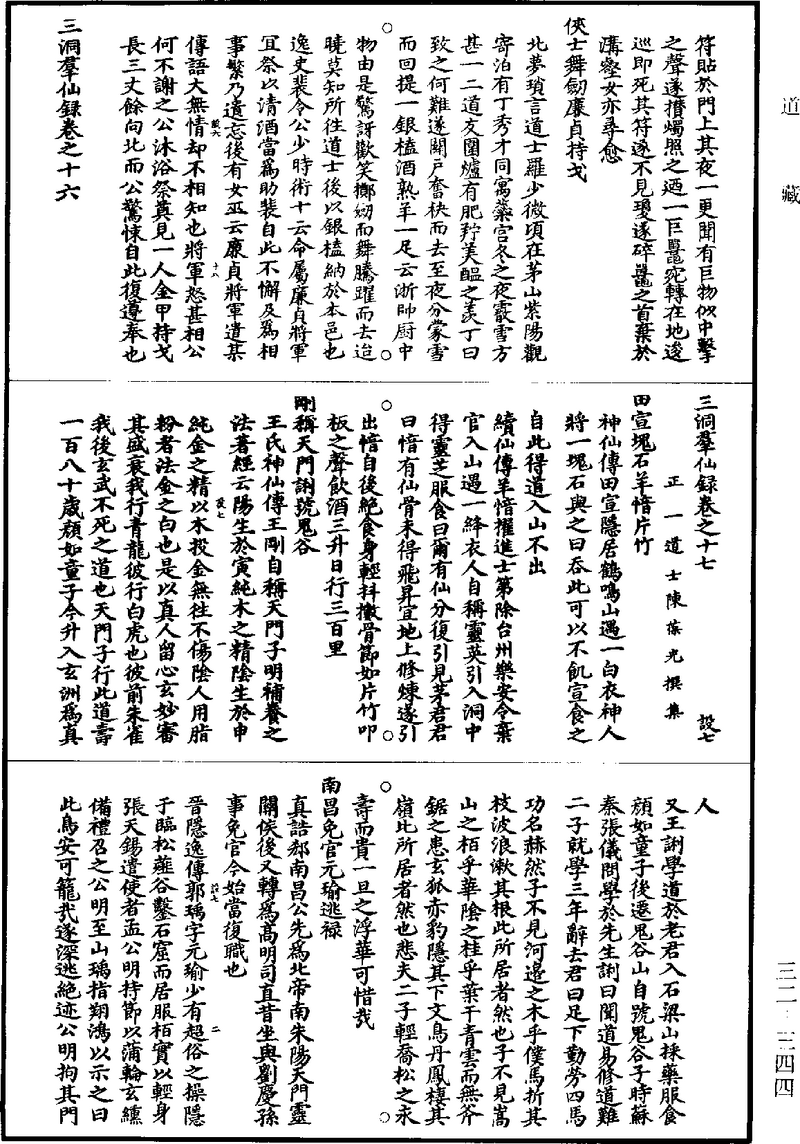 道藏
符貼於門上其夜一更聞有巨物似中擊
之聲遂攢燭照之廼一巨鼉宛轉在地逡
巡即死其符遂不見瓊遂碎鼉之首棄於
溝壑女亦尋愈
俠士舞劒廉貞持戈
北夢瑣言道士羅少微頃在茅山紫陽觀
寄泊有丁秀才同寓藁宫冬之夜霰雪方
甚一二道友圍爐有肥羜美醞之羡丁曰
致之何難遂闢户奮袂而去至夜分蒙雪
而回提一銀榼酒熟羊一足云浙帥厨中
物由是驚訝歡笑擲劒而舞騰躍而去迨
曉莫知所往道士後以銀榼納於本邑也
逸史裴令公少時術士云命屬廉貞將軍
宜祭以清酒當爲助裴自此不懈及爲相
事繁乃遺忘後有女巫云廉貞將軍遣某
傳語大無情却不相知也將軍怒甚相公
何不謝之公沐浴祭奠見一人金甲持戈
長三丈餘向北而公驚悚自此復遵奉也
三洞羣仙録卷之十六
三洞羣仙録卷之十七
設七
正一道士陳葆光撰集
田宣塊石羊愔片竹
神仙傳田宣隱居鶴鳴山遇一白衣神人
將一塊石與之曰吞此可以不飢宣食之
自此得道入山不出
續仙傳羊愔擢進士第除台州樂安令棄
官入山遇一絳衣人自稱靈英引入洞中
得靈芝服食曰爾有仙分復引見茅君君
曰愔有仙骨未得飛昇宜地上修煉遂引
出愔自後絶食身輕抖擻骨節如片竹叩
板之聲飲酒三升日行三百里
剛稱天門謝號鬼谷
王氏神仙傳王剛自稱天門子明補養之
法著經云陽生於寅純木之精陰生於申
純金之精以木投金無往不傷陰人用脂
粉者法金之白也是以真人留心玄妙審
其盛衰我行青龍彼行白虎也彼前朱雀
我後玄武不死之道也天門子行此道壽
一百八十歳顔如童子今升入玄洲爲真
人
又王謝學道於老君入石梁山採藥服食
顔如童子後遷鬼谷山自號鬼谷子時蘇
秦張儀問學於先生謝曰聞道易修道難
二子就學三年辭去君曰足下勤勞四馬
功名赫然子不見河邉之木乎僕馬折其
枝波浪漱其根此所居者然也子不見嵩
山之栢乎華隂之桂乎葉干青雲而無斧
鋸之患玄狐赤豹隱其下文鳥丹鳳棲其
嶺此所居者然也悲夫二子輕喬松之永
壽而貴一旦之浮華可惜哉
南昌免官元瑜逃禄
真誥郗南昌公先爲北帝南朱陽天門靈
關侯後又轉爲高明司直昔坐與劉慶孫
事免官今始當復職也
晉隱逸傳郭瑀字元瑜少有超俗之操隱
子臨松薤谷鑿石窟而居服栢實以輕身
張天錫遣使者孟公明持節以蒲輪玄纁
備禮召之公明至山瑀指翔鴻以示之曰
此鳥安可籠哉遂深逃絶迹公明拘其門
三二－三四四